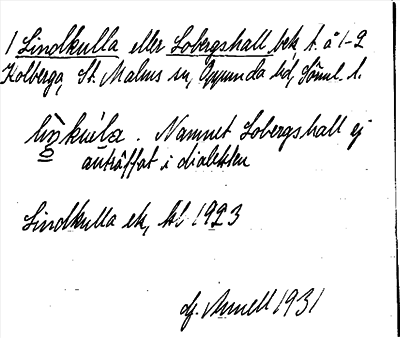 1 Lindkulla eller Lobergshall bek t. å 1-2
Kolberga, St. Malms sn, Oppunda hd, Söml. l.
Namnet Lobergshall ej
anträffat i dialekten
Lindkulla ek, kbl 1923
af. Arnell 1931